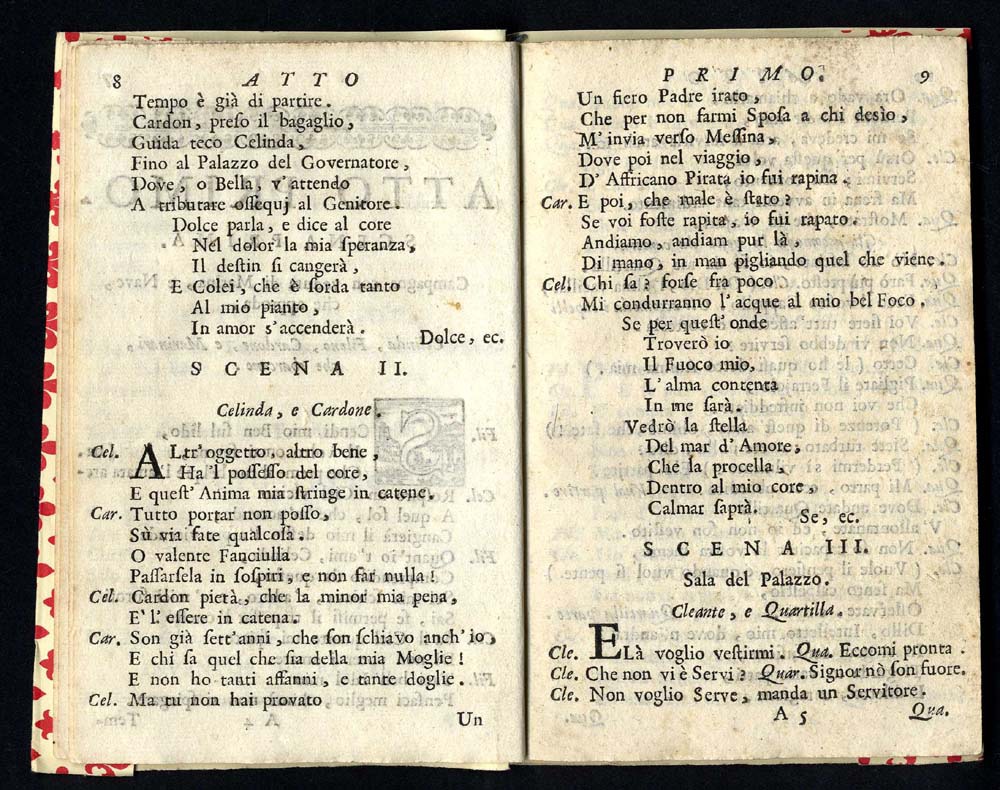 8 ATTO
Tempo è già di partire.
Cardon, preſo il bagaglio,
Guida teco Celinda,
Fino al Palazzo del Governatore,
Dove, o Bella, v'attendo
A tributare oſſequj al Genitore.
Dolce parla, e dice al core
Nel dolor la mia ſperanza,
Il deſtin ſi cangerà,
E Colei, che è ſorda tanto
Al mio pianto,
In amor s'accenderà.
Dolce, ec.
SCENA II.
Celinda, e Cardone.
Cel. ALtr'oggetto, altro bene,
Ha 'l poſſeſſo del core,
E queſt' Anima mia ſtringe in catene.
Car. Tutto portar non poſſo,
Sù via fate qualcoſa.
O valente Fanciulla
Paſſarſela in ſoſpiri, e non far nulla!
Cel. Cardon pietà, che la minor mia pena,
E' l' eſſere in catena.
Car. Son già ſett'anni, che ſon ſchiavo anch'io,
E chi ſa quel che ſia della mia Moglie!
E non ho tanti affanni, e tante doglie.
Cel. Ma tu non hai provato
Un
PRIMO. 9
Un fiero Padre irato,
Che per non farmi Spoſa a chi desìo,
M' invia verſo Meſſina,
Dove poi nel viaggio,
D' Affricano Pirata io fui rapina.
Car. E poi, che male è ſtato?
Se voi foſte rapita, io fui rapato.
Andiamo, andiam pur là,
Di mano, in man pigliando quel che viene.
Cel. Chi ſa? forſe fra poco
Mi condurranno l'acque al mio bel Foco.
Se per queſt' onde
Troverò io
Il Fuoco mio,
L' alma contenta
In me ſarà.
Vedrò la ſtella
Del mar d' Amore,
Che la procella,
Dentro al mio core,
Calmar ſaprà.
Se, ec.
SCENA III.
Sala del Palazzo.
Cleante, e Quartilla.
Cle. ELà voglio veſtirmi. Qua. Eccomi pronta.
Cle. Che non vi è Servi? Quar. Signor nò ſon fuore.
Cle. Non voglio Serve, manda un Servitore.
A 5 Qua.